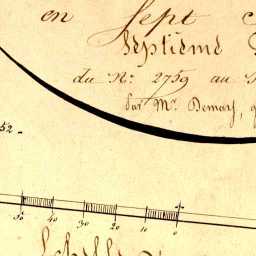 en Sept
Septième
du N° 2759 au
par Mr. Demary,
52.
50 40 30 20 10 0
Echelle